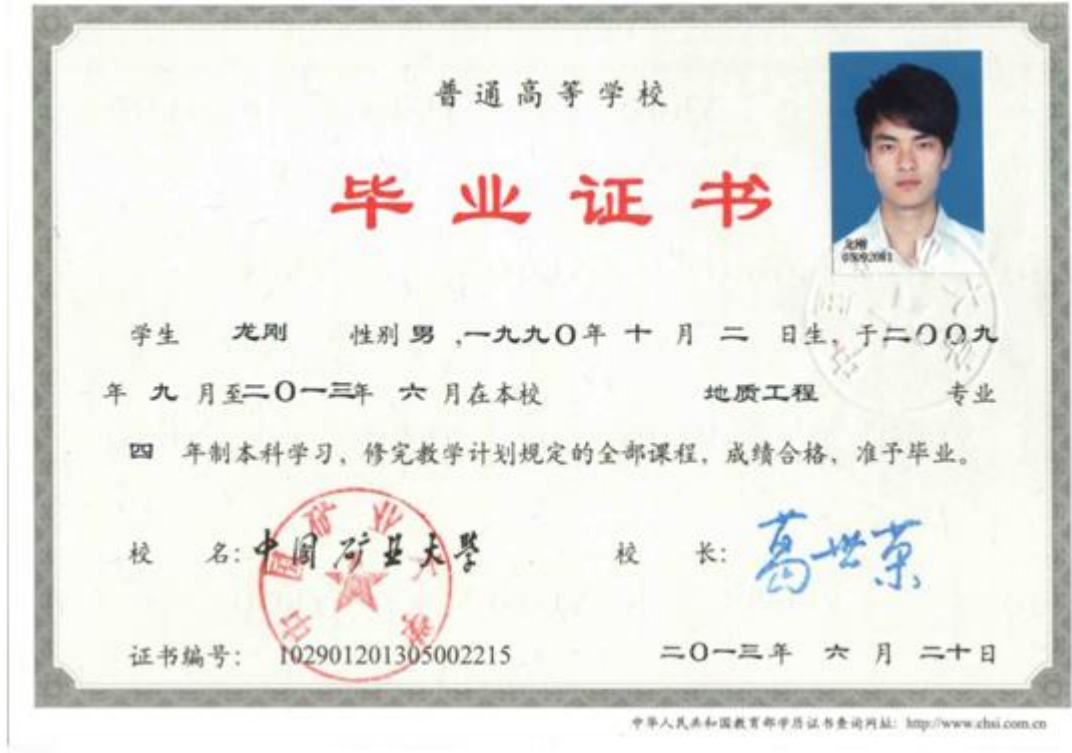 普通高等学校
毕业证书
龙刚
05092081
学生 龙刚 性别 男 ,一九九〇年 十 月 二 日生,于二〇〇九
年 九 月至二〇一三年 六 月在本校 地质工程 专业
四 年制本科学习,修完教学计划规定的全部课程,成绩合格,准予毕业。
校 名:中国矿业大学 校 长:葛世荣
中国矿业大学
证书编号: 102901201305002215 二〇一三年 六 月 二十日
中华人民共和国教育部学历证书查询网址: http://www.chsi.com.cn